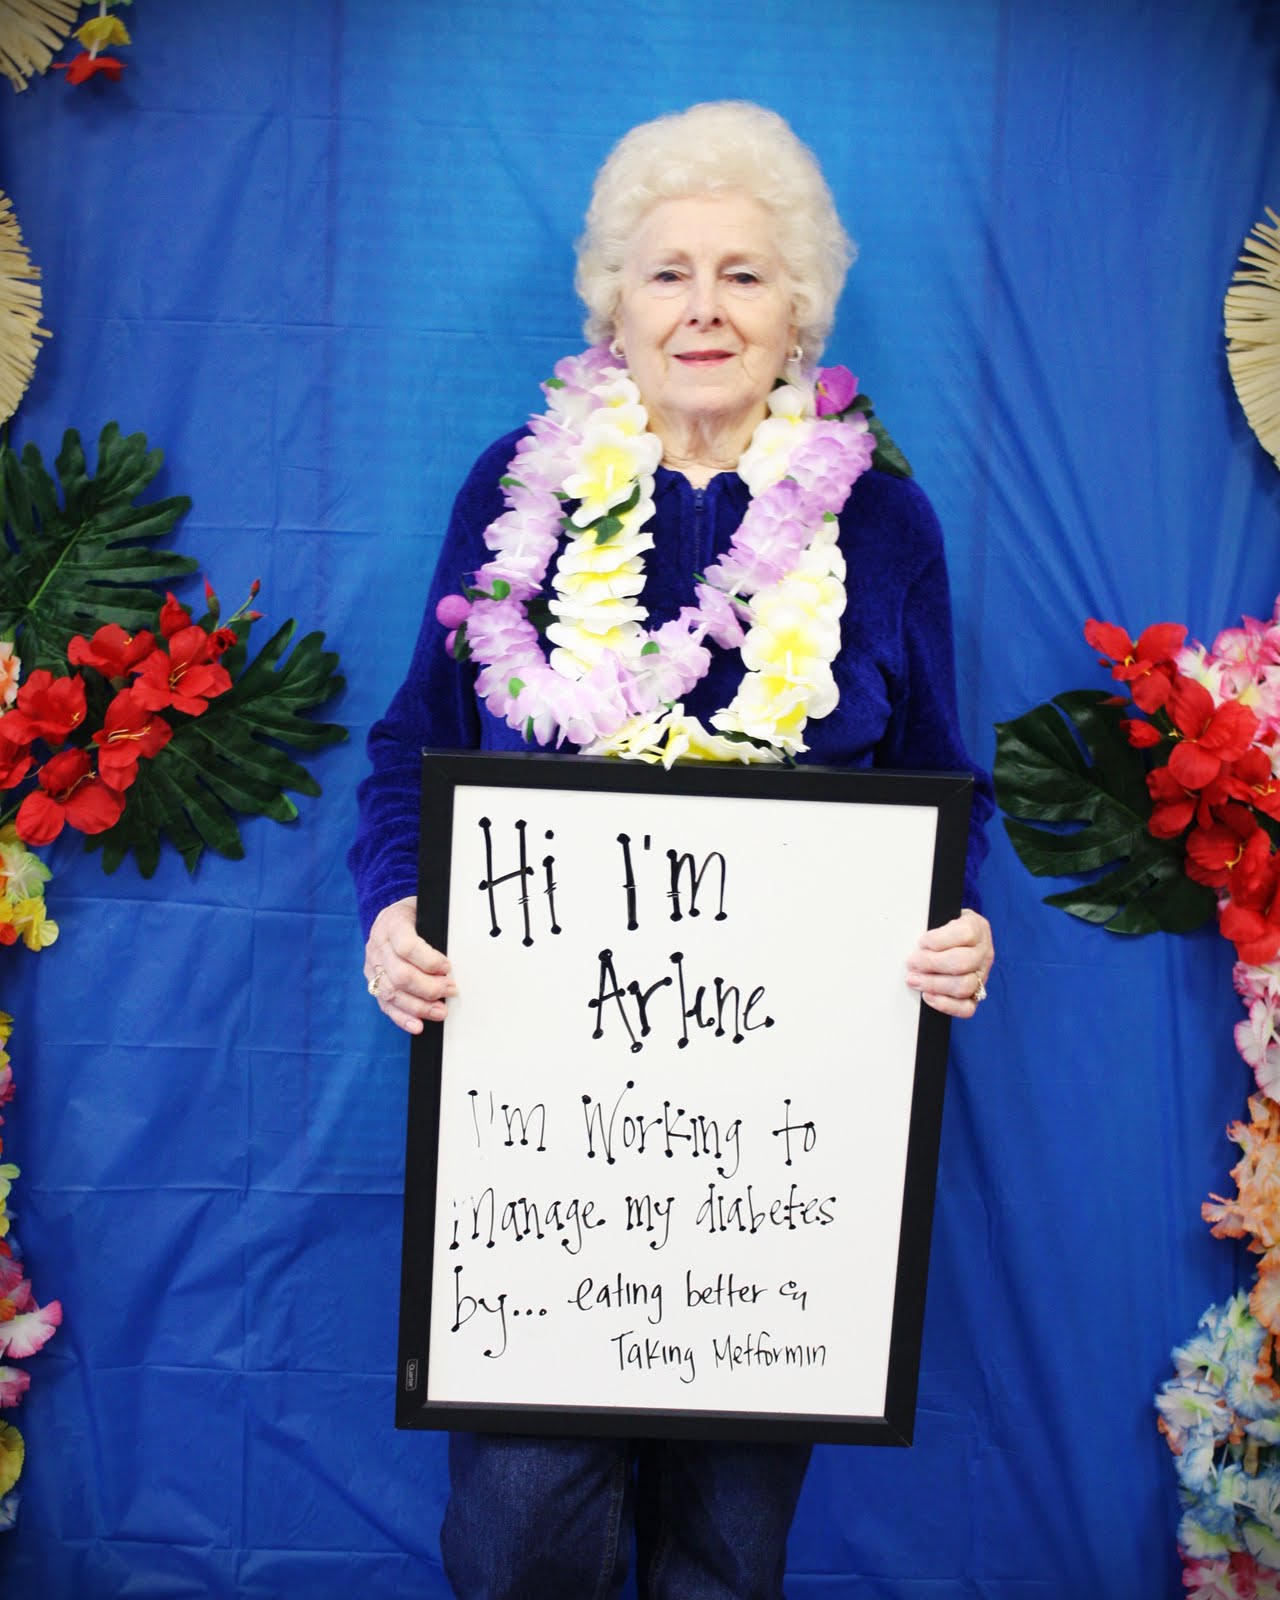 Hi I'm
Arlene
I'm Working to
Manage my diabetes
by... eating better &
Taking Metformin
Quartet